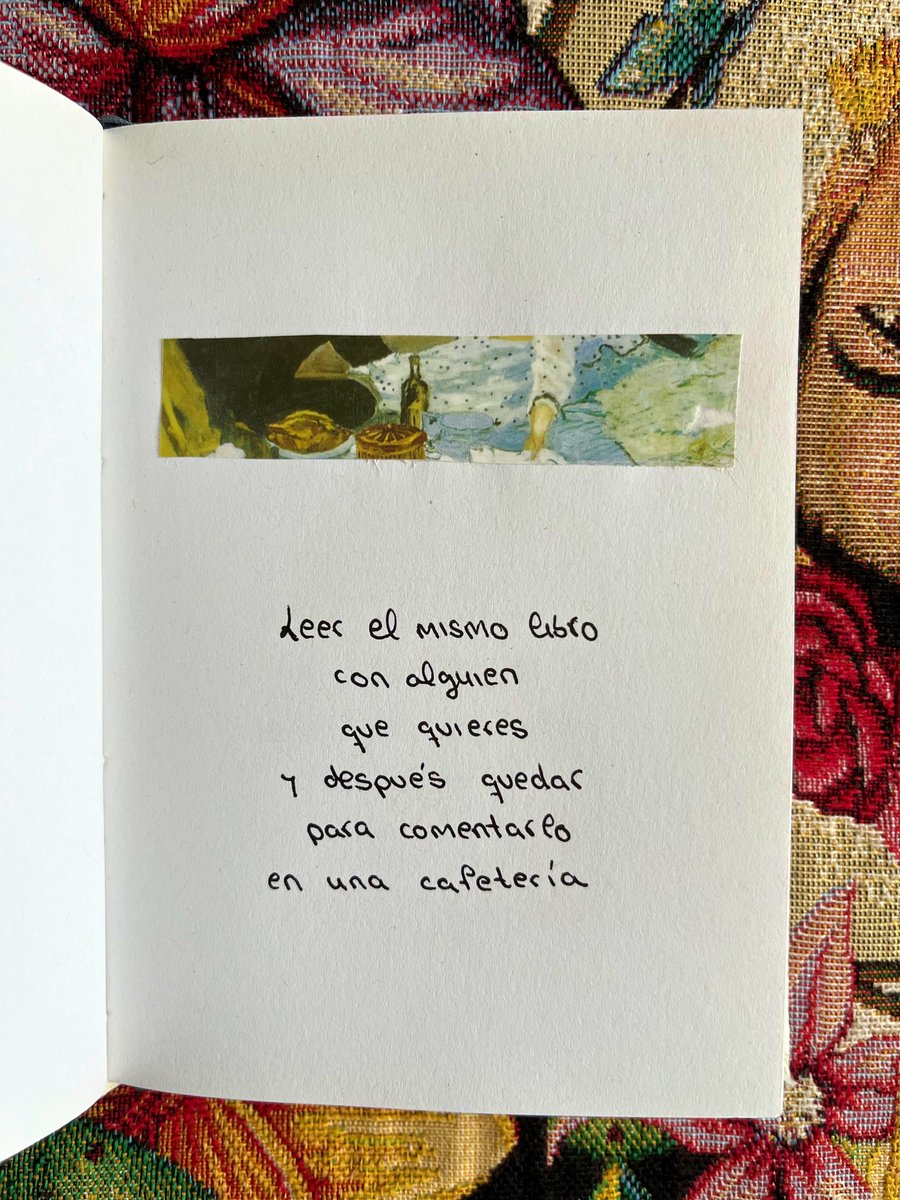 Leer el mismo libro
con alguien
que quieres
y después quedar
para comentarlo
en una cafetería